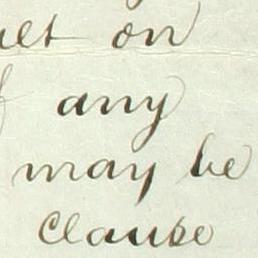 on
any
may be
clause